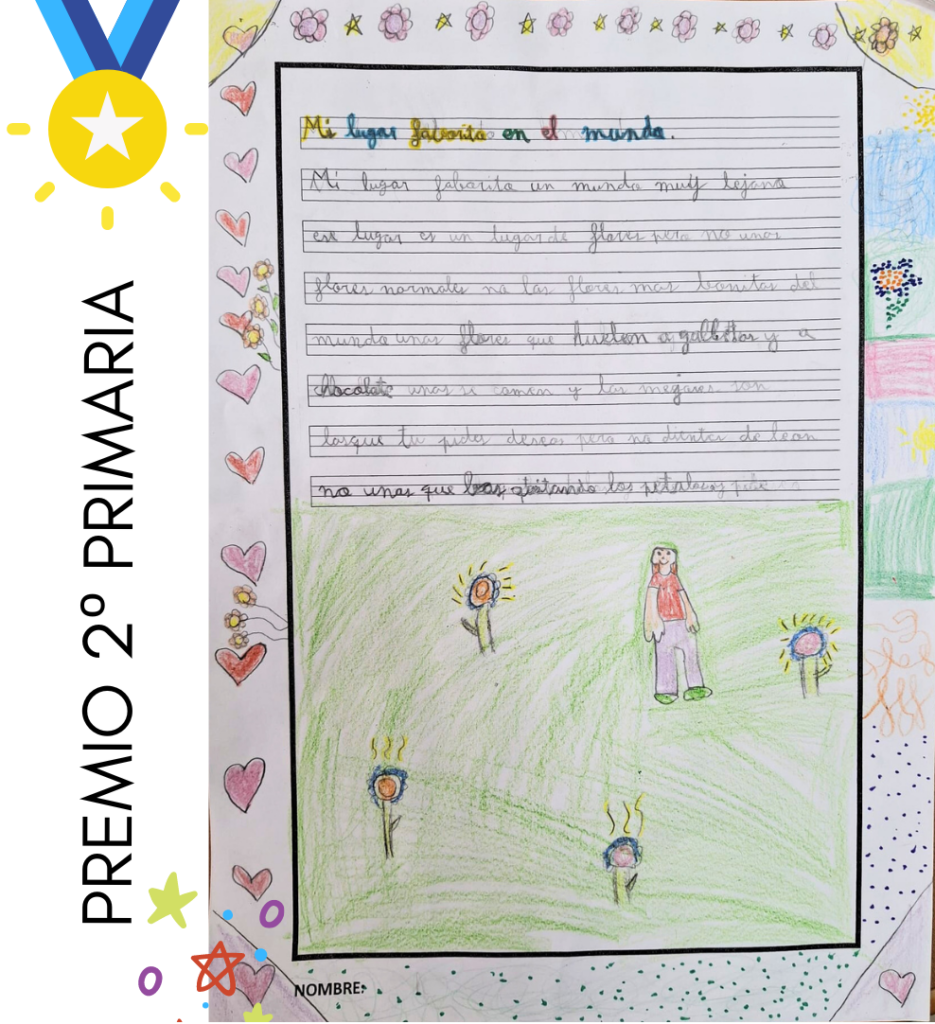 PREMIO 2º PRIMARIA
Mi lugar faborito en el mundo.
Mi lugar faborito un mundo muy lejano
ese lugar es un lugar de flores pero no unas
flores normales no las flores mas bonitas del
mundo unas flores que huelen a galletas y a
chocolate unas se comen y las mejores son
las que tu pides deseos pero no dientes de leon
no unas que los petalos
NOMBRE: